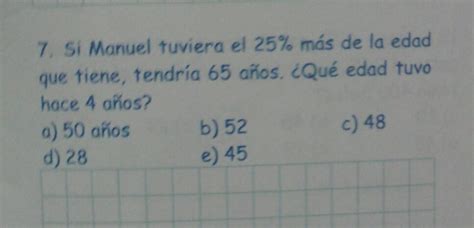 7. Si Manuel tuviera el 25% más de la edad
que tiene, tendría 65 años. ¿Qué edad tuvo
hace 4 años?
a) 50 años b) 52 c) 48
d) 28 e) 45